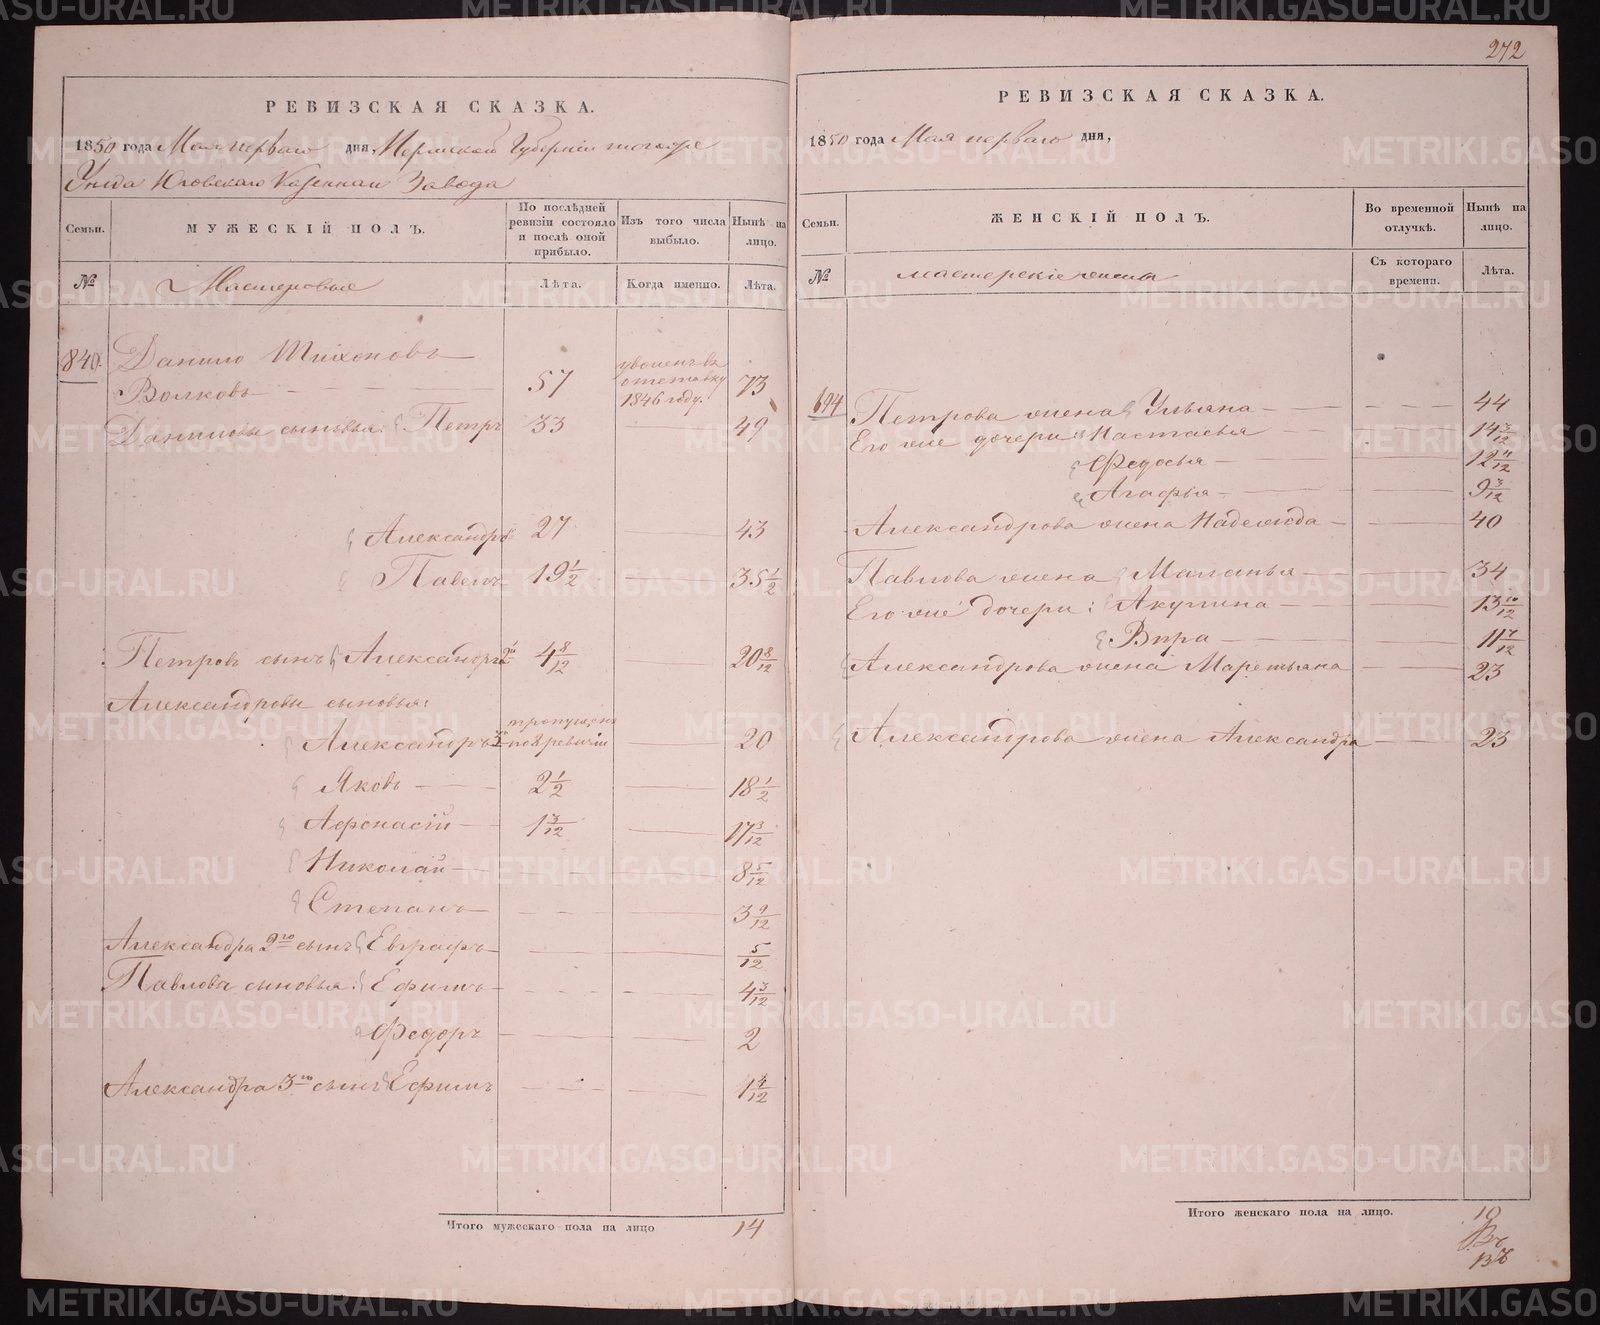 METRIKI.GASO-URAL.RU
272
РЕВИЗСКАЯ СКАЗКА.
1850 года Мая перваго дня, Пермской Губерніи тогоже
Уезда Юговскаго Казеннаго Завода
Семьи.
МУЖЕСКІЙ ПОЛЪ.
По послѣдней ревизіи состояло и послѣ оной прибыло.
Изъ того числа выбыло.
Нынѣ на лицо.
№
Мастеровые
Лѣта.
Когда именно.
Лѣта.
840.
Данило Тихоновъ
Волковъ 57 уволенъ въ отставку 1846 году. 73
Даниловы сыновья: Петръ 33 49
Александръ 27 43
Павелъ 19 1/2 35 1/2
Петровъ сынъ Александръ 2й 4 8/12 20 8/12
Александровы сыновья:
Александръ 3й пропущенъ по 8 ревизіи 20
Яковъ 2 1/2 18 1/2
Афонасій 1 3/12 17 3/12
Николай 8 5/12
Степанъ 3 9/12
Александра 2го сынъ Евграфъ 5/12
Павлова сыновья: Ефимъ 4 3/12
Федоръ 2
Александра 3го сынъ Ефимъ 1 4/12
Итого мужескаго пола на лицо 14
РЕВИЗСКАЯ СКАЗКА.
1850 года Мая перваго дня,
Семьи.
ЖЕНСКІЙ ПОЛЪ.
Во временной отлучкѣ.
Нынѣ на лицо.
№
мастерскіе жены
Съ котораго времени.
Лѣта.
694
Петрова жена Ульяна 44
Его же дочери: Настасья 14 3/12
Федосья 12 4/12
Агафья 9 3/12
Александрова жена Надежда 40
Павлова жена Маланья 34
Его же дочери: Акулина 13 10/12
Вѣра 11 7/12
Александрова жена Маремьяна 23
Александрова жена Александра 23
Итого женскаго пола на лицо. 10